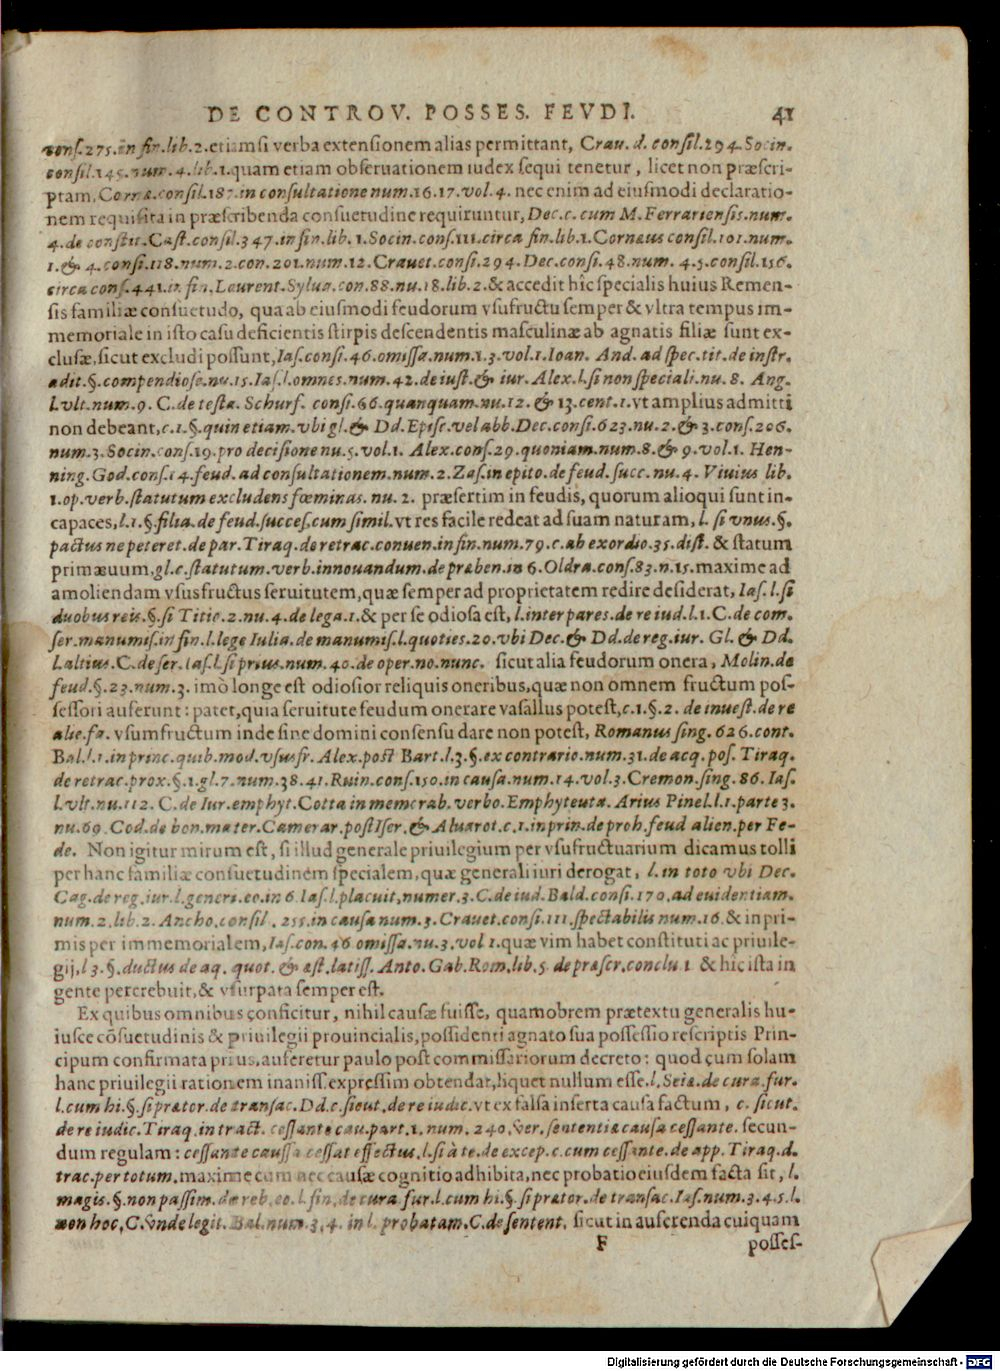 DE CONTROV. POSSES. FEVDI. 41
cons. 275. in fin. lib. 2. etiamsi verba extensionem alias permittant, Crau. d. consil. 294. Socin.
consil. 145. num. 4. lib. 1. quam etiam obseruationem iudex sequi tenetur, licet non præscri-
ptam, Corra. consil. 187. in consultatione num. 16. 17. vol. 4. nec enim ad eiusmodi declaratio-
nem requisita in præscribenda consuetudine requiruntur, Dec. c. cum M. Ferrariensis. num.
4. de constit. Cast. consil. 347. in fin. lib. 1. Socin. cons. 111. circa fin. lib. 1. Corneus consil. 101. num.
1. & 4. consi. 118. num. 2. con. 201. num. 12. Crauet. consi. 294. Dec. consi. 48. num. 4. 5. consil. 156.
circa cons. 441. in fin. Laurent. Sylua. con. 88. nu. 18. lib. 2. & accedit hîc specialis huius Remen-
sis familiæ consuetudo, qua ab eiusmodi feudorum vsufructu semper & vltra tempus im-
memoriale in isto casu deficientis stirpis descendentis masculinæ ab agnatis filiæ sunt ex-
clusæ, sicut excludi possunt, Ias. consi. 46. omissa. num. 1. 3. vol. 1. Ioan. And. ad spec. tit. de instr.
adit. §. compendiose. nu. 15. Ias. l. omnes. num. 42. de iust. & iur. Alex. l. si non speciali. nu. 8. Ang.
l. vlt. num. 9. C. de testa. Schurf. consi. 66. quanquam. nu. 12. & 13. cent. 1. vt amplius admitti
non debeant, c. 1. §. quin etiam. vbi gl. & Dd. Episc. vel abb. Dec. consi. 623. nu. 2. & 3. cons. 206.
num. 3. Socin. cons. 19. pro decisione nu. 5. vol. 1. Alex. cons. 29. quoniam. num. 8. & 9. vol. 1. Hen-
ning. God. cons. 14. feud. ad consultationem. num. 2. Zas. in epito. de feud. succ. nu. 4. Viuius lib.
1. op. verb. statutum excludens fœminas. nu. 2. præsertim in feudis, quorum alioqui sunt in-
capaces, l. 1. §. filia. de feud. succes. cum simil. vt res facile redeat ad suam naturam, l. si vnus. §.
pactus ne peteret. de par. Tiraq. de retrac. conuen. in fin. num. 79. c. ab exordio. 35. dist. & statum
primæuum, gl. c. statutum. verb. innouandum. de præben. in 6. Oldra. cons. 83. n. 15. maxime ad
amoliendam vsusfructus seruitutem, quæ semper ad proprietatem redire desiderat, Ias. l. si
duobus reis. §. si Titio. 2. nu. 4. de lega. 1. & per se odiosa est, l. inter pares. de re iud. l. 1. C. de com.
ser. manumis. in fin. l. lege Iulia. de manumis. l. quoties. 20. vbi Dec. & Dd. de reg. iur. Gl. & Dd.
l. altius. C. de ser. Ias. l. si prius. num. 40. de oper. no. nunc. sicut alia feudorum onera, Molin. de
feud. §. 23. num. 3. imò longe est odiosior reliquis oneribus, quæ non omnem fructum pos-
sessori auferunt: patet, quia seruitute feudum onerare vasallus potest, c. 1. §. 2. de inuest. de re
alie. fa. vsumfructum inde sine domini consensu dare non potest, Romanus sing. 626. cont.
Bal. l. 1. in princ. quib. mod. vsusfr. Alex. post Bart. l. 3. §. ex contrario. num. 31. de acq. pos. Tiraq.
de retrac. prox. §. 1. gl. 7. num. 38. 41. Ruin. cons. 150. in causa. num. 14. vol. 3. Cremon. sing. 86. Ias.
l. vlt. nu. 112. C. de Iur. emphyt. Cotta in memorab. verbo. Emphyteuta. Arius Pinel. l. 1. parte 3.
nu. 69. Cod. de bon. mater. Camerar. post Iser. & Aluarot. c. 1. in prin. de proh. feud alien. per Fe-
de. Non igitur mirum est, si illud generale priuilegium per vsufructuarium dicamus tolli
per hanc familiæ consuetudinem specialem, quæ generali iuri derogat, l. in toto vbi Dec.
Cag. de reg. iur. l. generi. eo. in 6. Ias. l. placuit, numer. 3. C. de iud. Bald. consi. 170. ad euidentiam.
num. 2. lib. 2. Ancho. consil. 255. in causa num. 3. Crauet. consi. 111. spectabilis num. 16. & inpri-
mis per immemorialem, Ias. con. 46 omissa. nu. 3. vol 1. quæ vim habet constituti ac priuile-
gij, l 3. §. ductus de aq. quot. & æst. latiss. Anto. Gab. Rom. lib. 5. de præscr. conclu 1 & hic ista in
gente percrebuit, & vsurpata semper est.
Ex quibus omnibus conficitur, nihil causæ fuisse, quamobrem prætextu generalis hu-
iusce cõsuetudinis & priuilegii prouincialis, possidenti agnato sua possessio rescriptis Prin-
cipum confirmata prius, auferetur paulo post commissariorum decreto: quod cum solam
hanc priuilegii rationem inaniss. expressim obtendat, liquet nullum esse. l. Seia. de cura fur.
l. cum hi. §. si prætor. de transac. Dd. c. sicut. de re iudic. vt ex falsa inserta causa factum, c. sicut.
de re iudic. Tiraq. in tract. cessante cau. part. 1. num. 240. ver. sententia causa cessante. secun-
dum regulam: cessante caussa cessat effectus, l. si à te. de excep. c. cum cessante. de app. Tiraq. d.
trac. per totum. maxime cum nec causæ cognitio adhibita, nec probatio eiusdem facta sit, l.
magis. §. non passim. de reb. eo. l. fin. de cura fur. l. cum hi. §. si prætor. de transac. Ias. num. 3. 4. 5. l.
non hoc, C. vnde legit. Bal. num. 3. 4. in l. probatam. C. de sentent. sicut in auferenda cuiquam
F posses-
Digitalisierung gefördert durch die Deutsche Forschungsgemeinschaft - DFG